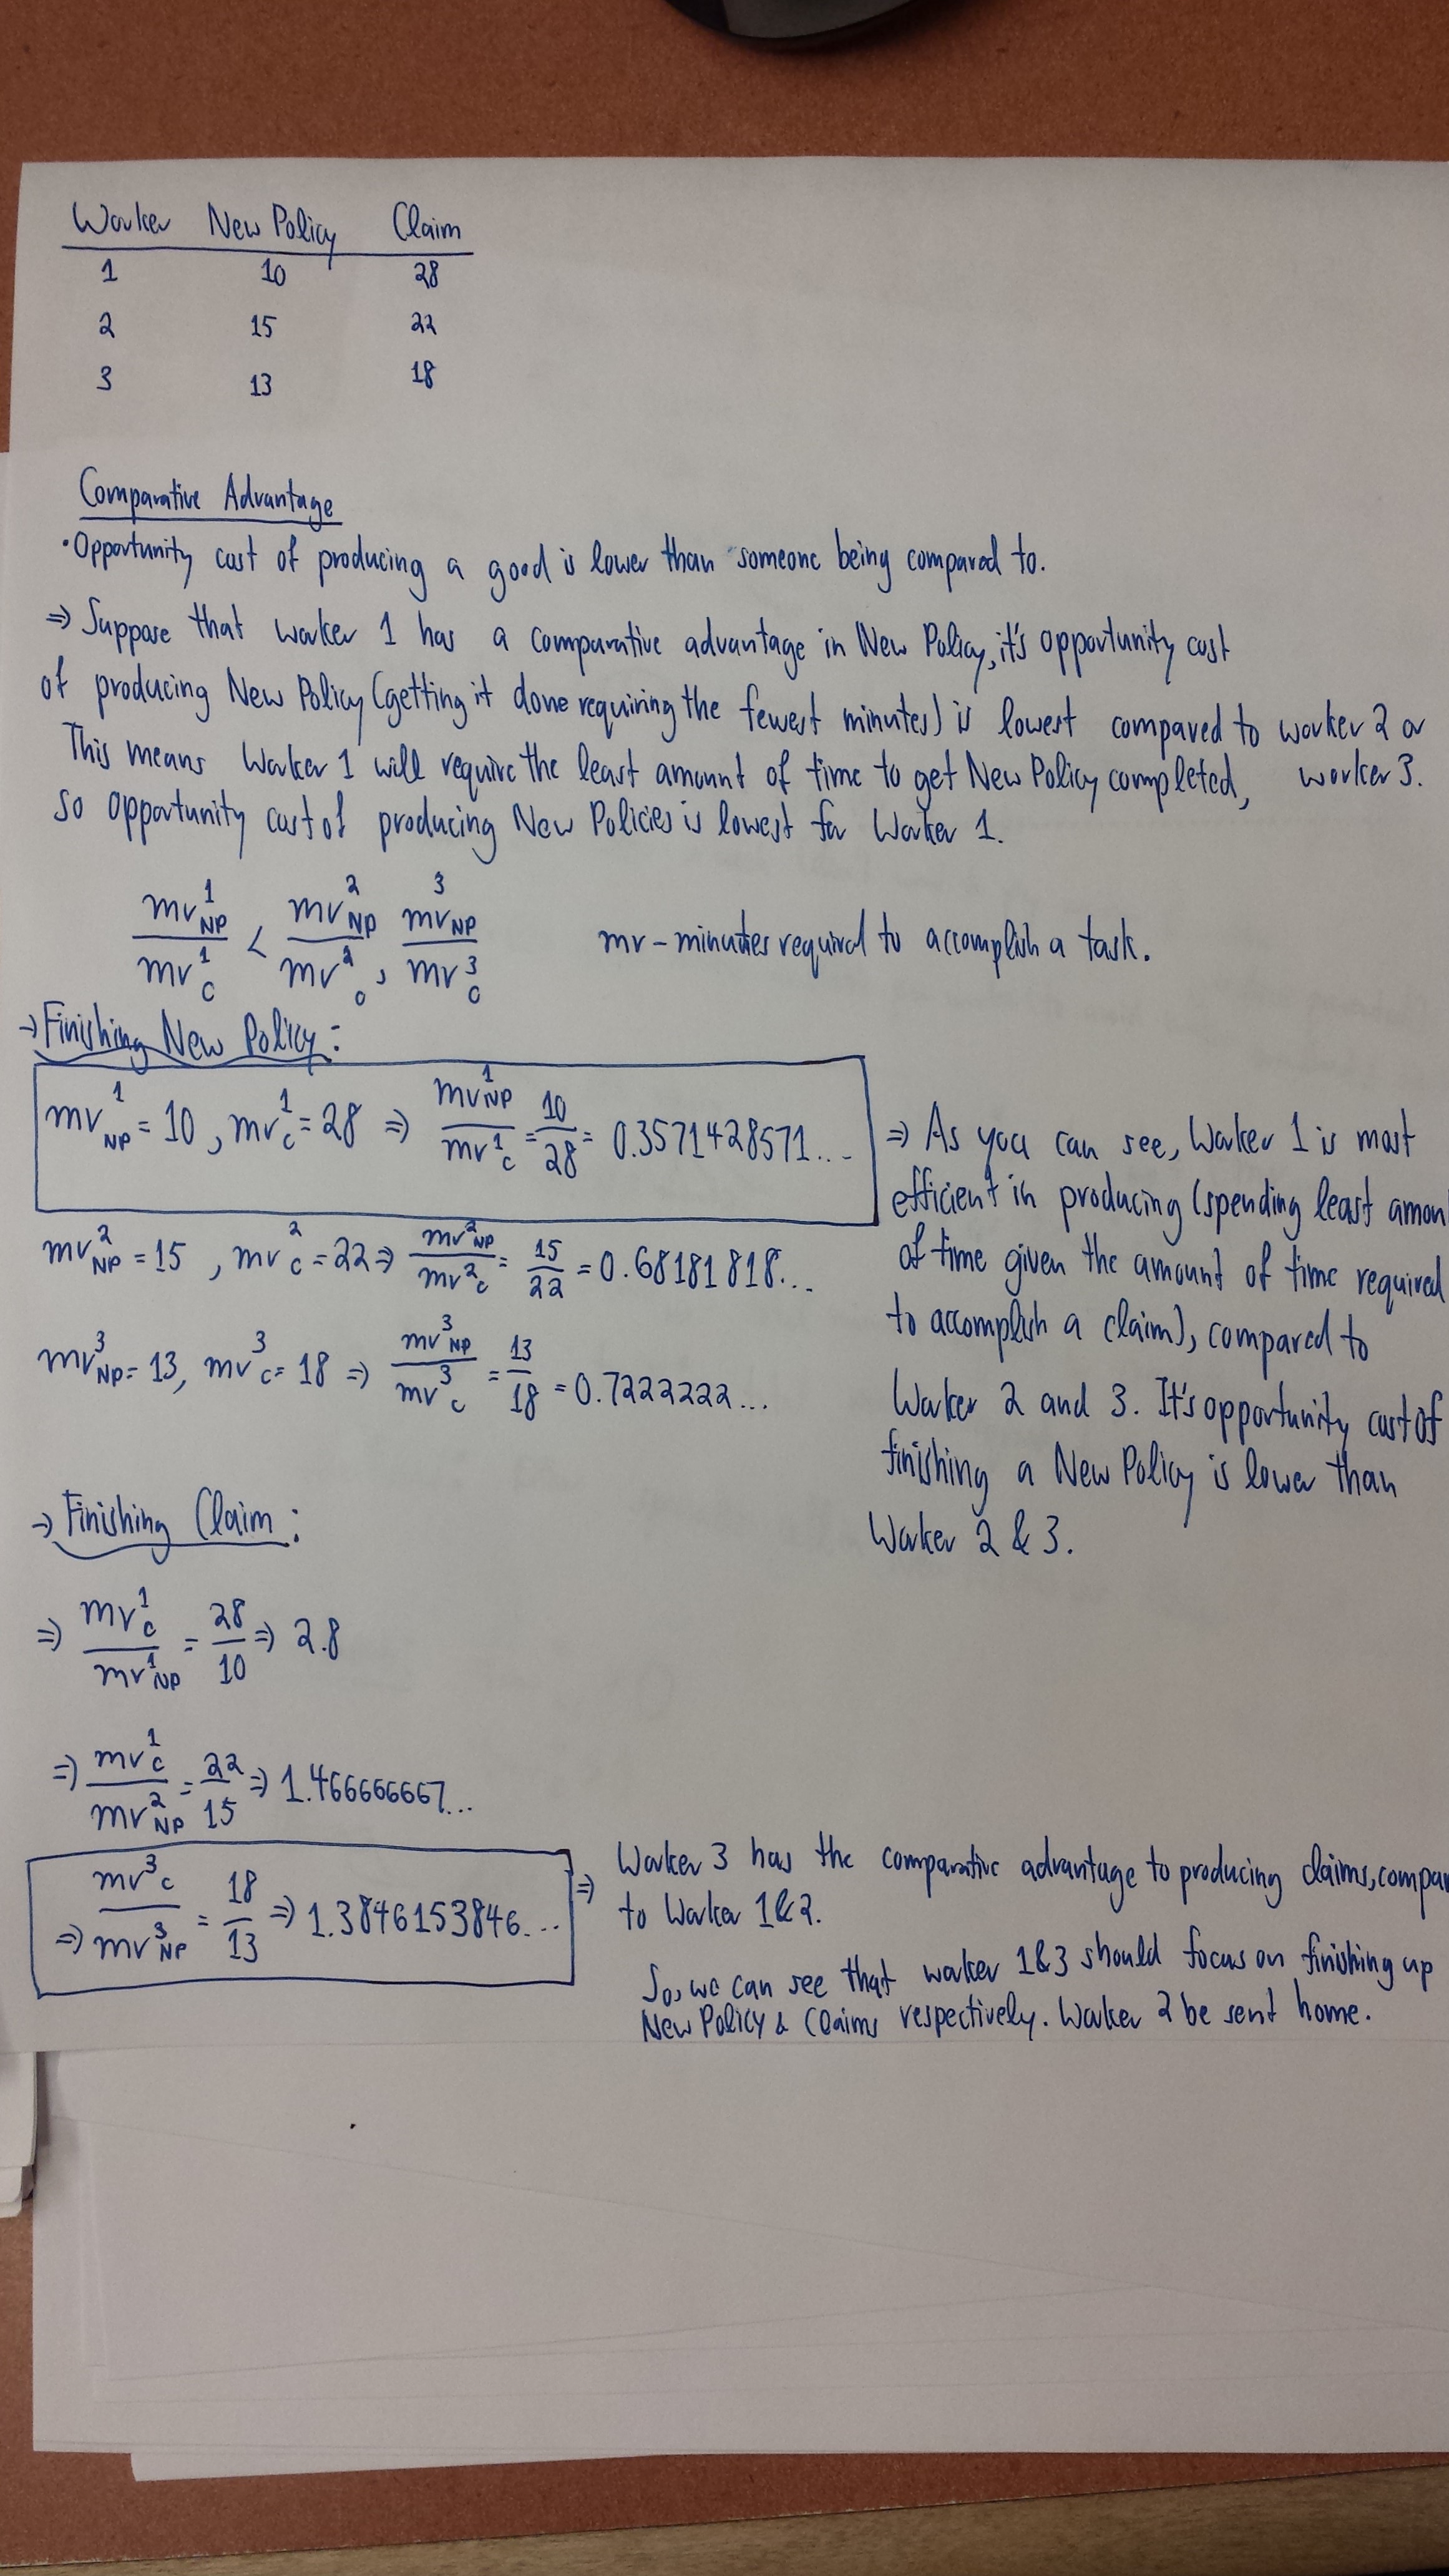 Worker New Policy Claim
1 10 28
2 15 22
3 13 18
Comparative Advantage
• Opportunity cost of producing a good is lower than someone being compared to.
⇒ Suppose that worker 1 has a comparative advantage in New Policy, it's opportunity cost
of producing New Policy (getting it done requiring the fewest minutes) is lowest compared to worker 2 or
worker 3.
This means Worker 1 will require the least amount of time to get New Policy completed,
so opportunity cost of producing New Policies is lowest for Worker 1.
mr¹_NP / mr¹_C < mr²_NP / mr²_C , mr³_NP / mr³_C mr – minutes required to accomplish a task.
→ Finishing New Policy:
mr¹_NP = 10 , mr¹_C = 28 ⇒ mr¹_NP / mr¹_C = 10/28 = 0.3571428571...
mr²_NP = 15 , mr²_C = 22 ⇒ mr²_NP / mr²_C = 15/22 = 0.68181818...
mr³_NP = 13, mr³_C = 18 ⇒ mr³_NP / mr³_C = 13/18 = 0.7222222...
⇒ As you can see, Worker 1 is most
efficient in producing (spending least amoun
of time given the amount of time required
to accomplish a claim), compared to
Worker 2 and 3. It's opportunity cost of
finishing a New Policy is lower than
Worker 2 & 3.
→ Finishing Claim:
⇒ mr¹_C / mr¹_NP = 28/10 ⇒ 2.8
⇒ mr¹_C / mr²_NP = 22/15 ⇒ 1.466666667...
⇒ mr³_C / mr³_NP = 18/13 ⇒ 1.3846153846...
⇒ Worker 3 has the comparative advantage to producing claims, compar
to Worker 1 & 2.
So, we can see that worker 1&3 should focus on finishing up
New Policy & Claims respectively. Worker 2 be sent home.